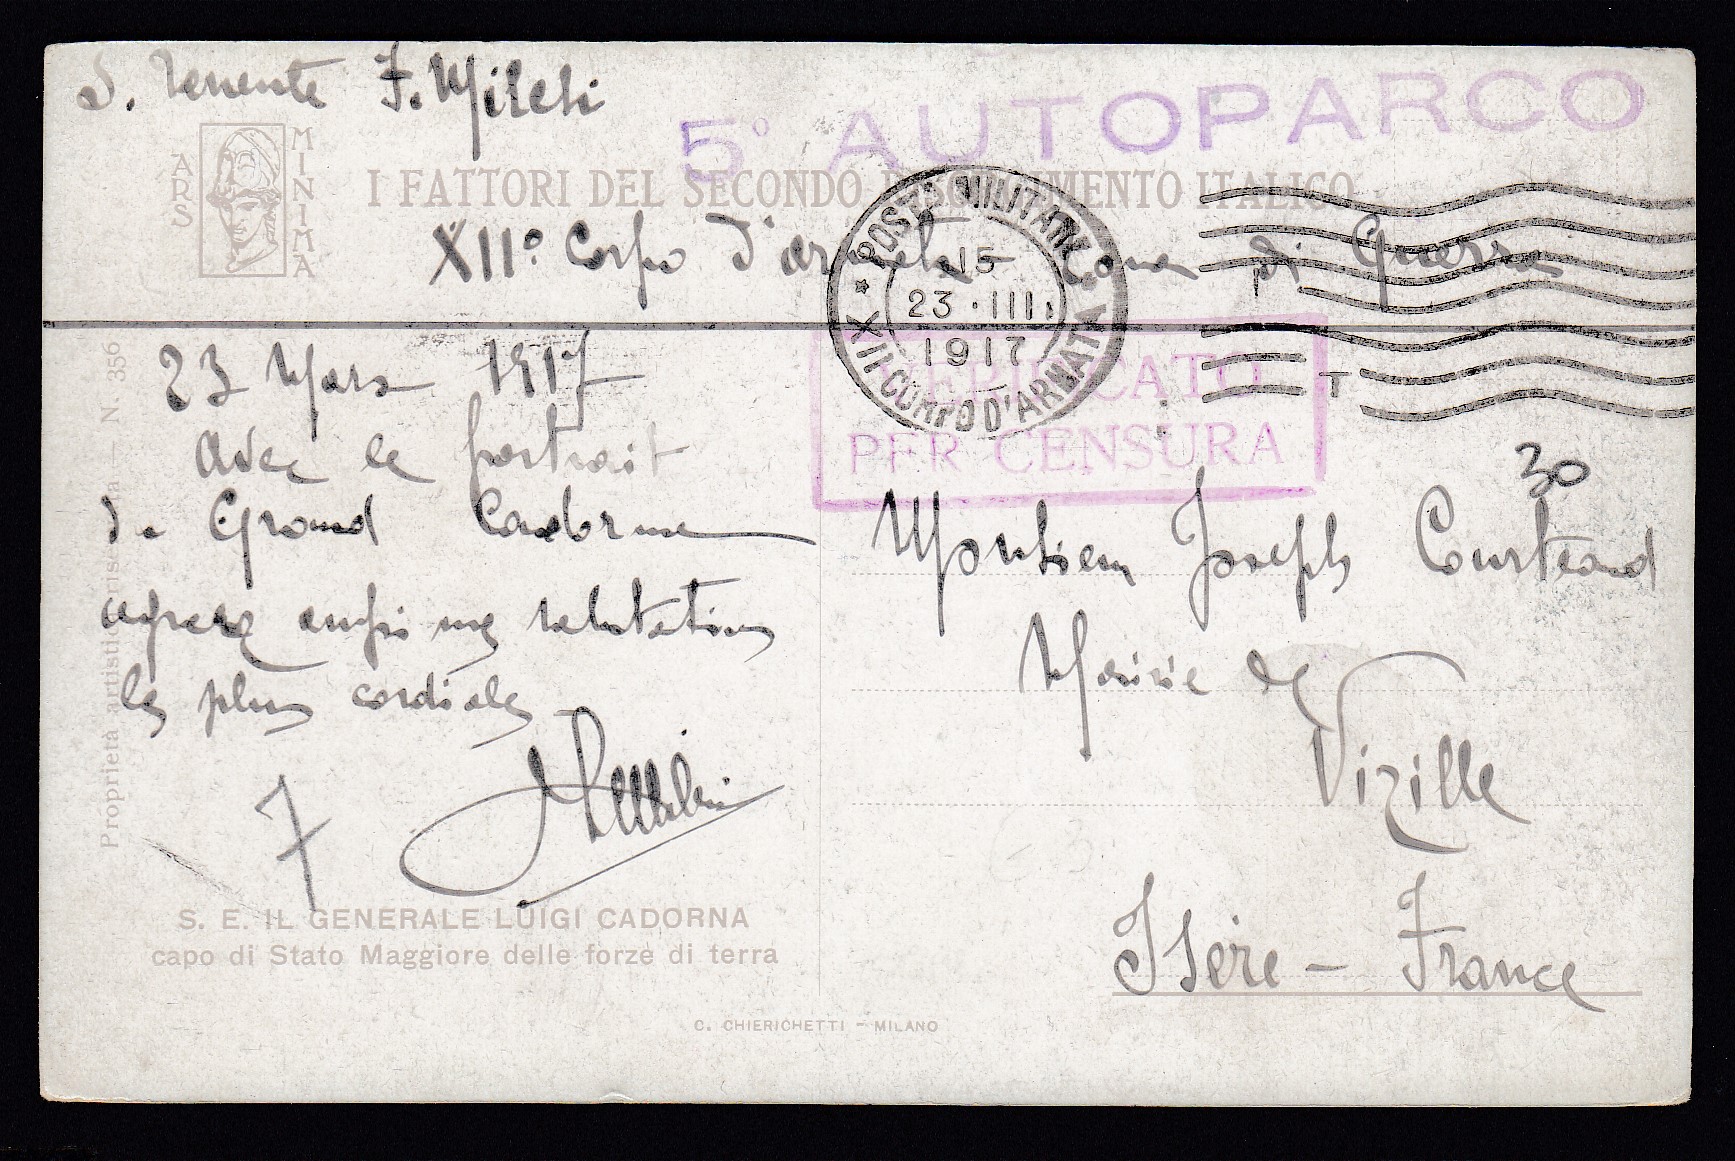 S. Tenente F. Milesi
5° AUTOPARCO
ARS
MINIMA
I FATTORI DEL SECONDO RISORGIMENTO ITALICO
XII° Corpo d'armata Zona di Guerra
POSTA MILITARE
15
23·III·
1917
XII CORPO D'ARMATA
T
VERIFICATO
PER CENSURA
23 Mars 1917
avec le portrait
du Grand Cadorna
agreez mes salutations
les plus cordiales
7
30
Monsieur Joseph Courteaud
Mairie de
Vizille
Isère - France
Proprietà artistica riservata — N. 356
S. E. IL GENERALE LUIGI CADORNA
capo di Stato Maggiore delle forze di terra
C. CHIERICHETTI - MILANO